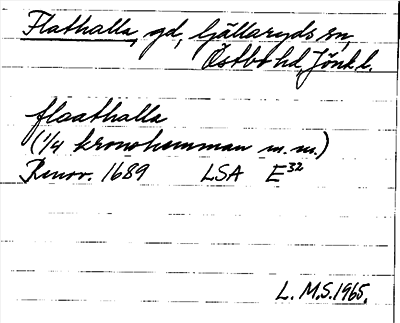 Flathalla, gd, Gällaryds sn,
Östbo hd, Jönk. l.
flaathalla
(1/4 kronohemman m.m.)
Renov. 1689 LSA E32
L. M.S. 1965.